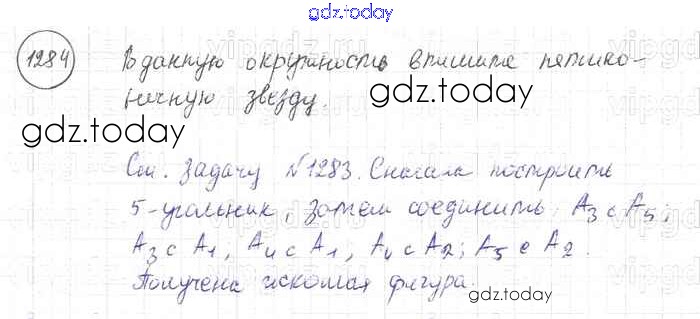 gdz.today
1284 В данную окружность впишите пятико-
нечную звезду. gdz.today
gdz.today
См. Задачу №1283. Сначала построить
5-угольник, затем соединить A₃ с A₅;
A₃ с A₁, A₄ с A₁, A₄ с A₂; A₅ с A₂.
Получена искомая фигура.
gdz.today